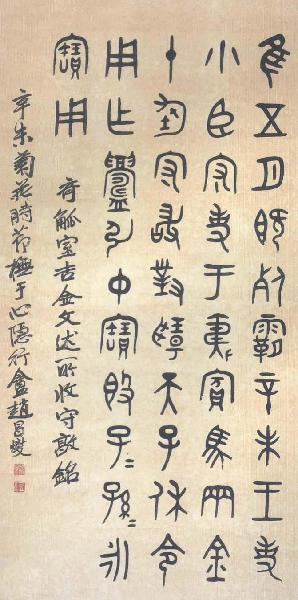 隹五月既死霸辛未王吏
小臣守吏于夷賓馬兩金
十鈞守敢對揚天子休令
用乍鑄引中寶𣪘子〻孫〻永
寶用
奇觚室吉金文述所收守敦銘
辛未菊花時節橅于心隱行盦趙昌燮